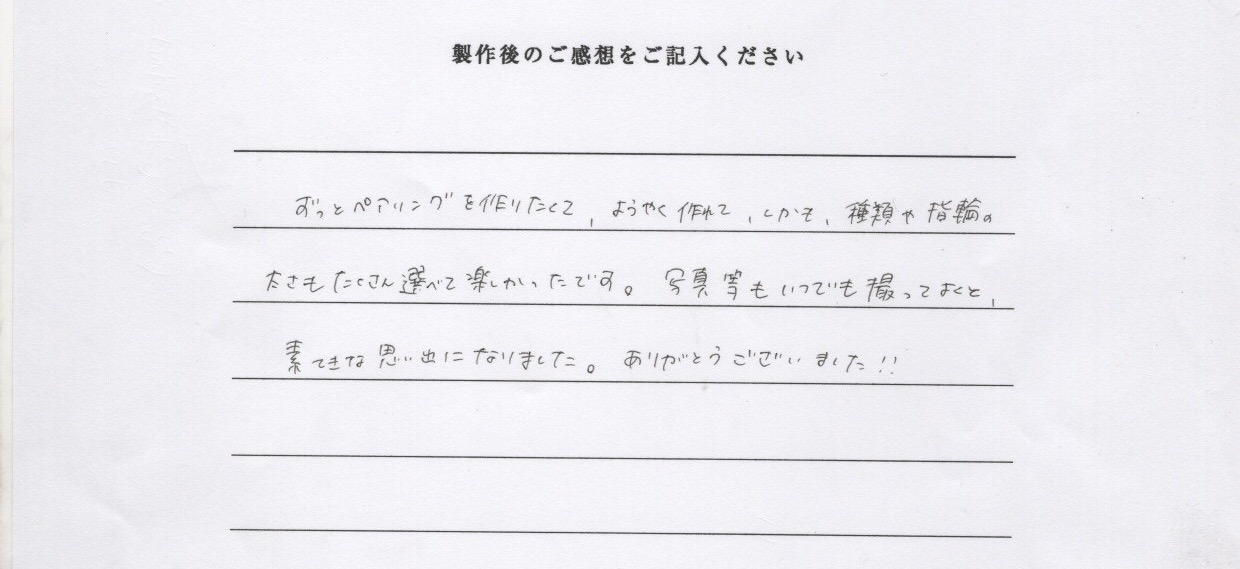 製作後のご感想をご記入ください
ずっとペアリングを作りたくて、ようやく作れて、しかも、種類や指輪の
太さもたくさん選べて楽しかったです。写真等もいつでも撮っておくと、
素てきな思い出になりました。ありがとうございました!!